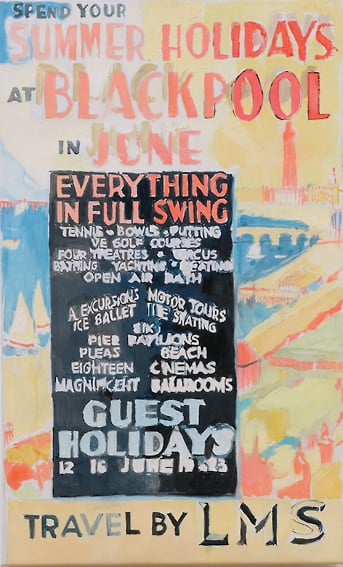 SPEND YOUR
SUMMER HOLIDAYS
AT BLACKPOOL
IN JUNE
EVERYTHING
IN FULL SWING
TENNIS · BOWLS · PUTTING
VE GOLF COURSES
FOUR THEATRES · CIRCUS
BATHING YACHTING
OPEN AIR BATH
A EXCURSIONS MOTOR TOURS
ICE BALLET ICE SKATING
SIX
PIER PAVILIONS
PLEAS BEACH
EIGHTEEN CINEMAS
MAGNIFICENT BALLROOMS
GUEST
HOLIDAYS
12 JUNE
TRAVEL BY LMS